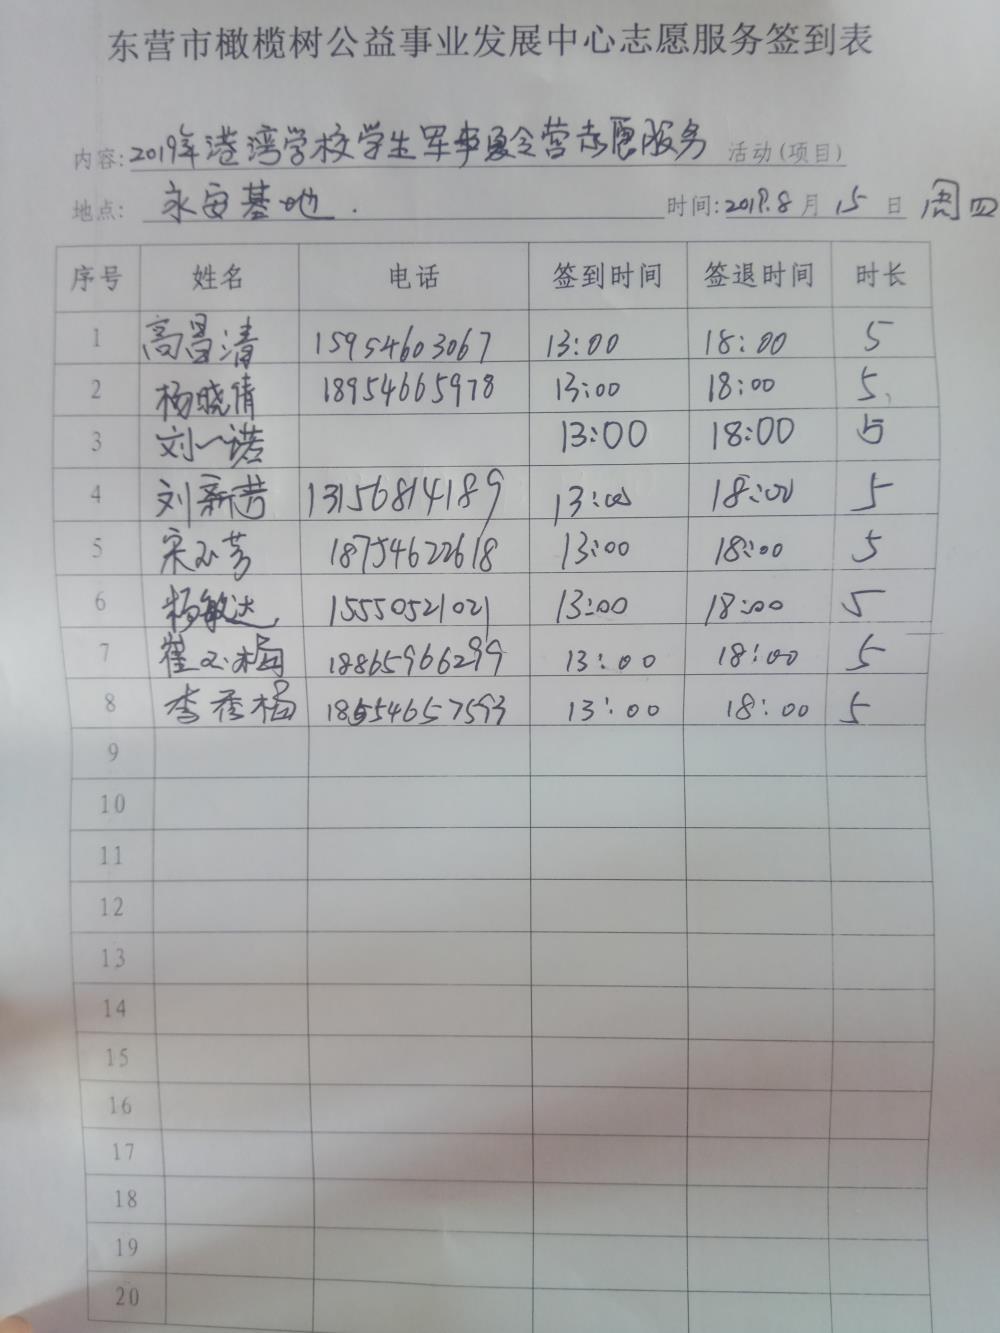 东营市橄榄树公益事业发展中心志愿服务签到表
内容: 2019年港湾学校学生军事夏令营志愿服务 活动(项目)
地点: 永安基地. 时间: 2019.8月15日 周四
序号 姓名 电话 签到时间 签退时间 时长
1 高昌清 15954603067 13:00 18:00 5
2 杨晓倩 18954665978 13:00 18:00 5、
3 刘一诺 13:00 18:00 5
4 刘新苗 13156814189 13:00 18:00 5
5 宋玉芳 18754622618 13:00 18:00 5
6 杨敏达 15550521021 13:00 18:00 5
7 崔玉梅 18865966299 13:00 18:00 5
8 李秀梅 18554657593 13:00 18:00 5
9
10
11
12
13
14
15
16
17
18
19
20